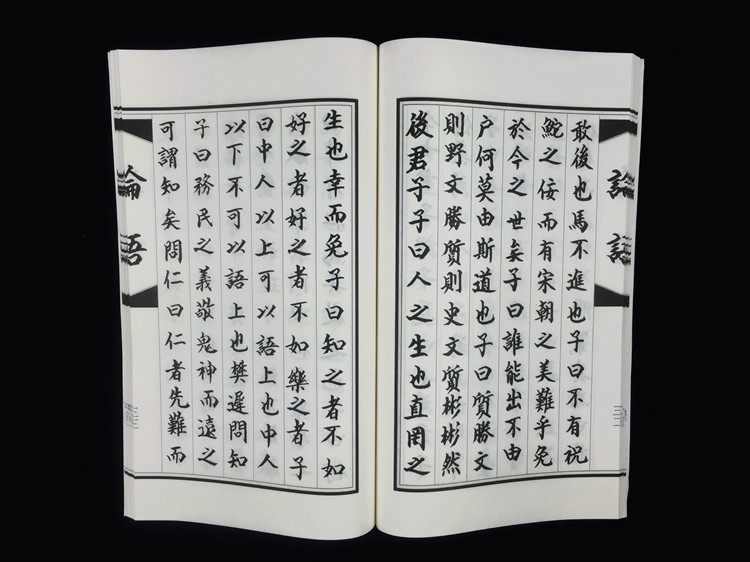 論語
敢後也馬不進也子曰不有祝
鮀之佞而有宋朝之美難乎免
於今之世矣子曰誰能出不由
户何莫由斯道也子曰質勝文
則野文勝質則史文質彬彬然
後君子子曰人之生也直罔之
生也幸而免子曰知之者不如
好之者好之者不如樂之者子
曰中人以上可以語上也中人
以下不可以語上也樊遲問知
子曰務民之義敬鬼神而遠之
可謂知矣問仁曰仁者先難而
論語